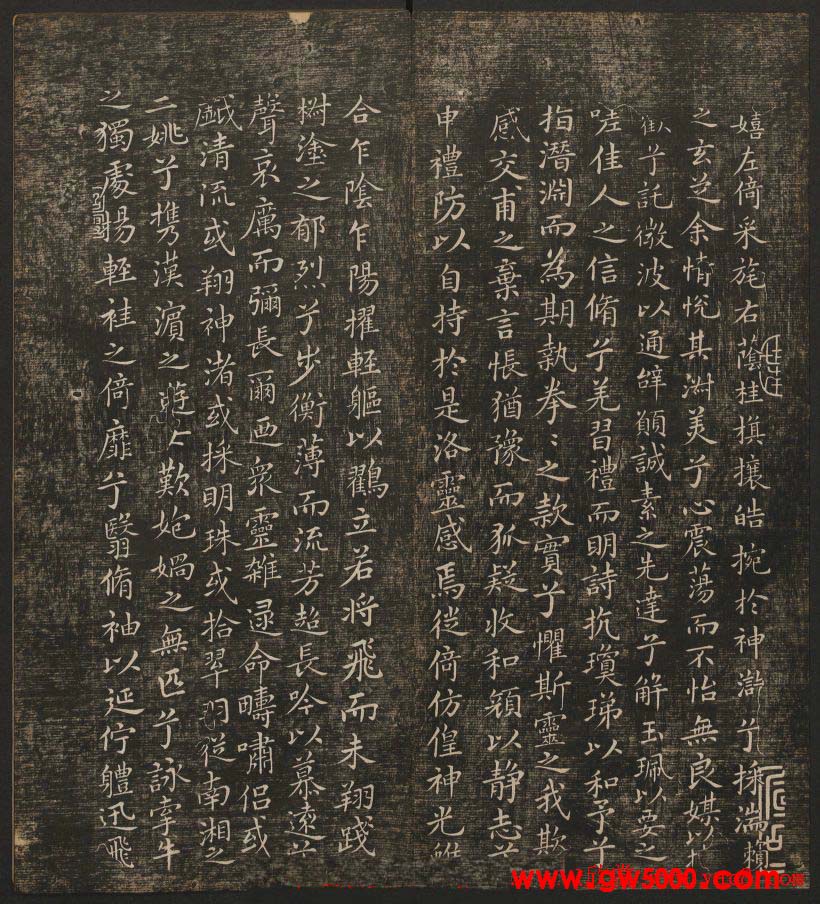 嬉左倚采旄右蔭桂旗攘皓捥於神滸兮採湍瀨
之玄芝余情悅其淑美兮心震蕩而不怡無良媒以接
懽兮託微波以通辭願誠素之先達兮解玉珮以要之
嗟佳人之信脩兮羌習禮而明詩抗瓊珶以和予兮
指潛淵而為期執拳〻之款實兮懼斯靈之我欺
感交甫之棄言悵猶豫而狐疑收和顏以静志兮
申禮防以自持於是洛靈感焉徙倚仿偟神光離
合乍陰乍陽擢輕軀以鶴立若將飛而未翔踐
椒塗之郁烈兮步衡薄而流芳超長吟以慕遠兮
聲哀厲而彌長爾迺衆靈雜遝命疇嘯侶或
戲清流或翔神渚或採明珠或拾翠羽從南湘之
二姚兮携漢濱之歎匏媧之無匹兮詠牽牛
之獨處揚輕袿之倚靡兮翳脩袖以延佇軆迅飛
www.gw5000.com